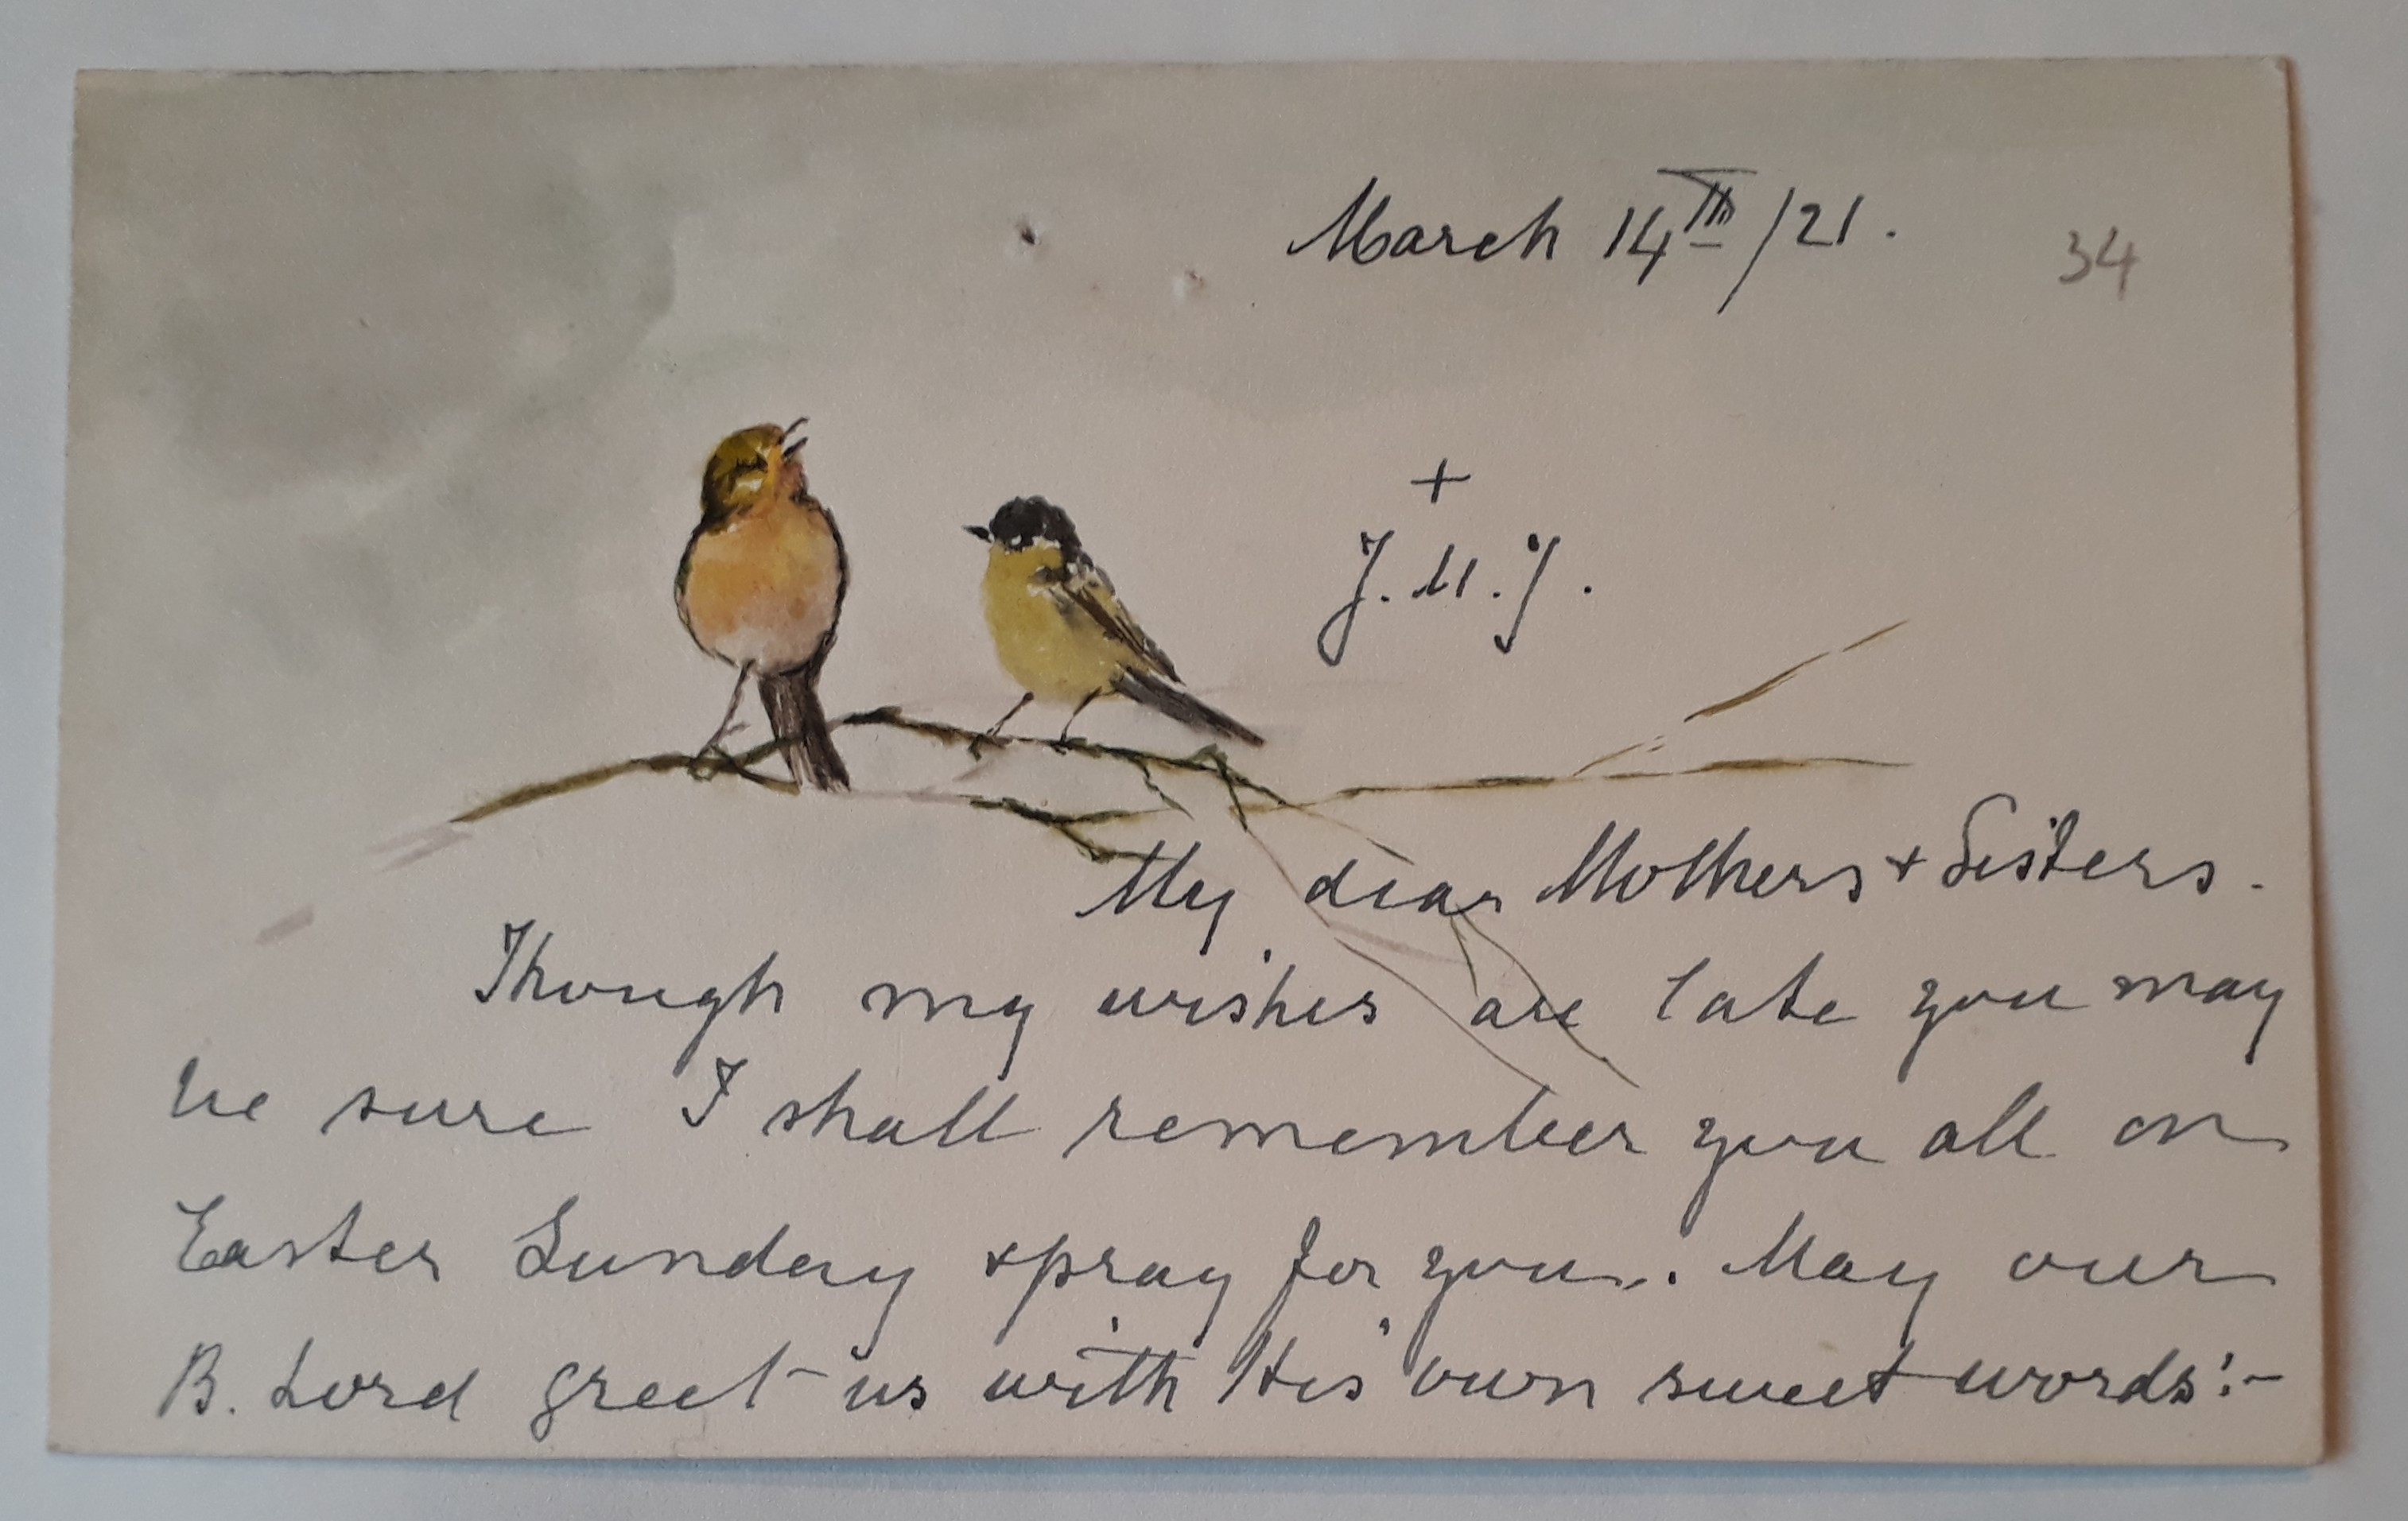 March 14th/21.
34
+
J.M.J.
My dear Mothers + Sisters.
Though my wishes are late you may
be sure I shall remember you all on
Easter Sunday + pray for you. May our
B. Lord greet us with His own sweet words:-